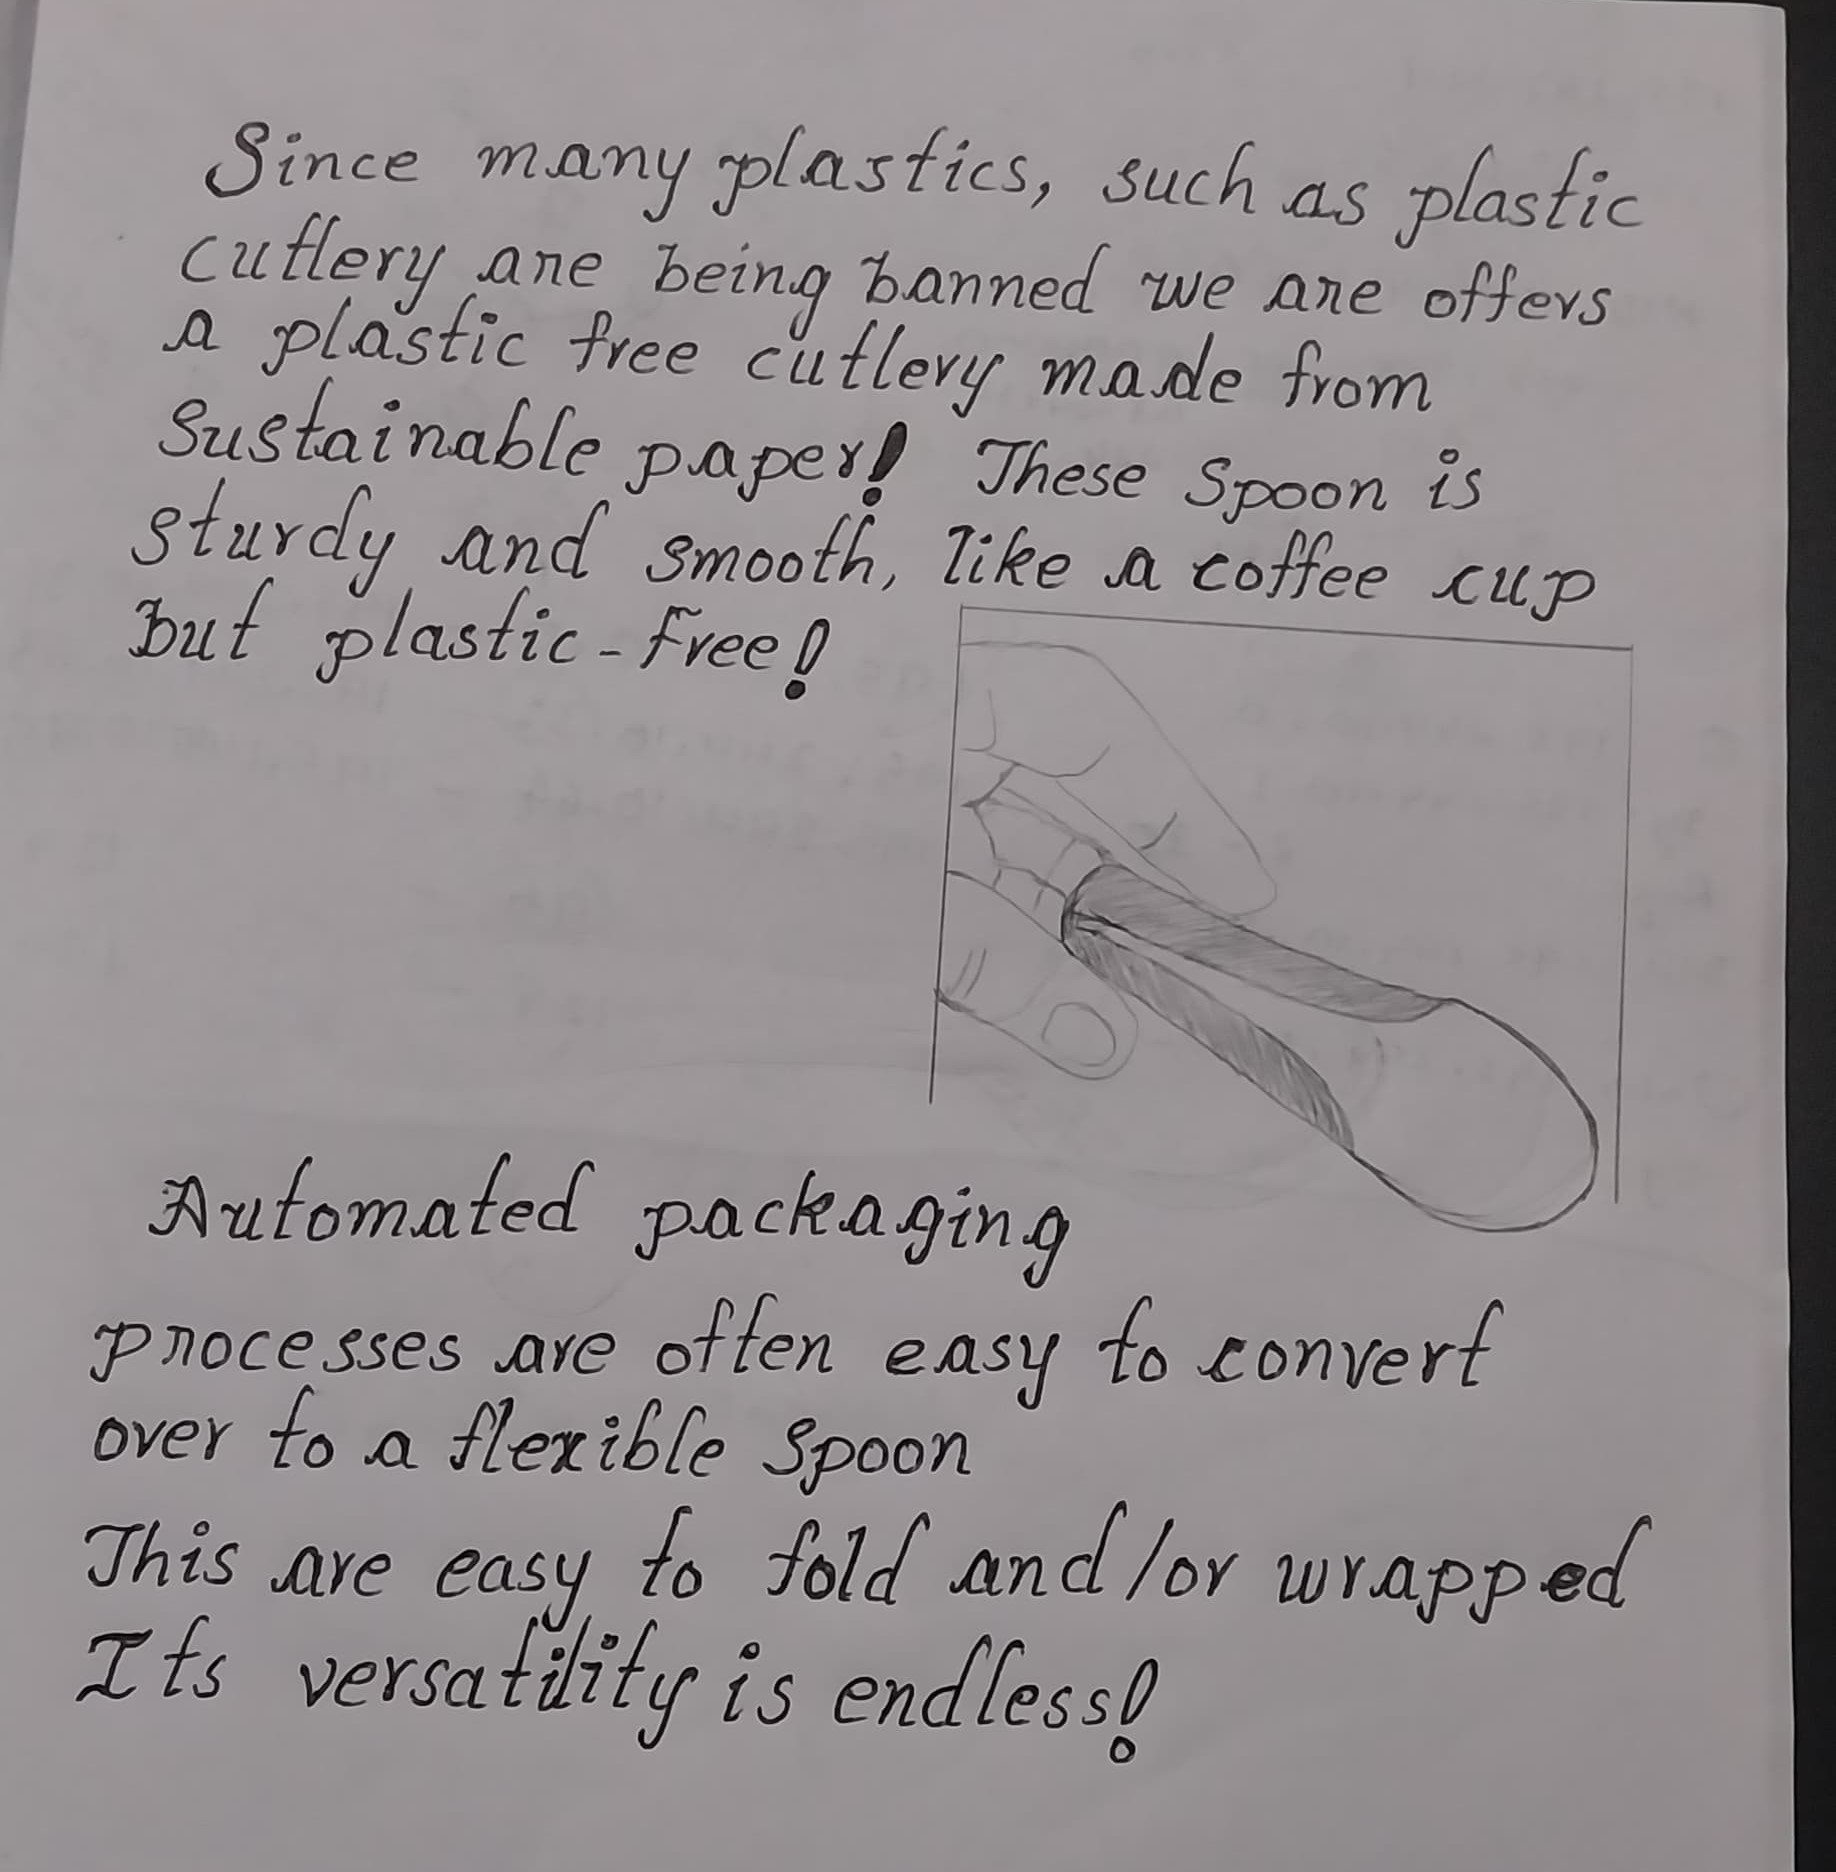 Since many plastics, such as plastic
cutlery are being banned we are offers
a plastic free cutlery made from
Sustainable paper! These Spoon is
sturdy and smooth, like a coffee cup
but plastic-free!
Automated packaging
processes are often easy to convert
over to a flexible Spoon
This are easy to fold and/or wrapped
Its versatility is endless!